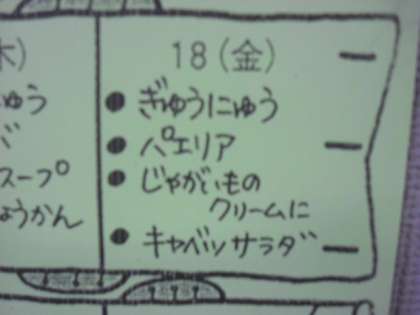 木)
18(金)
ゅう
ぎゅうにゅう
パエリア
スープ
じゃがいもの
クリームに
ょうかん
キャベツサラダ